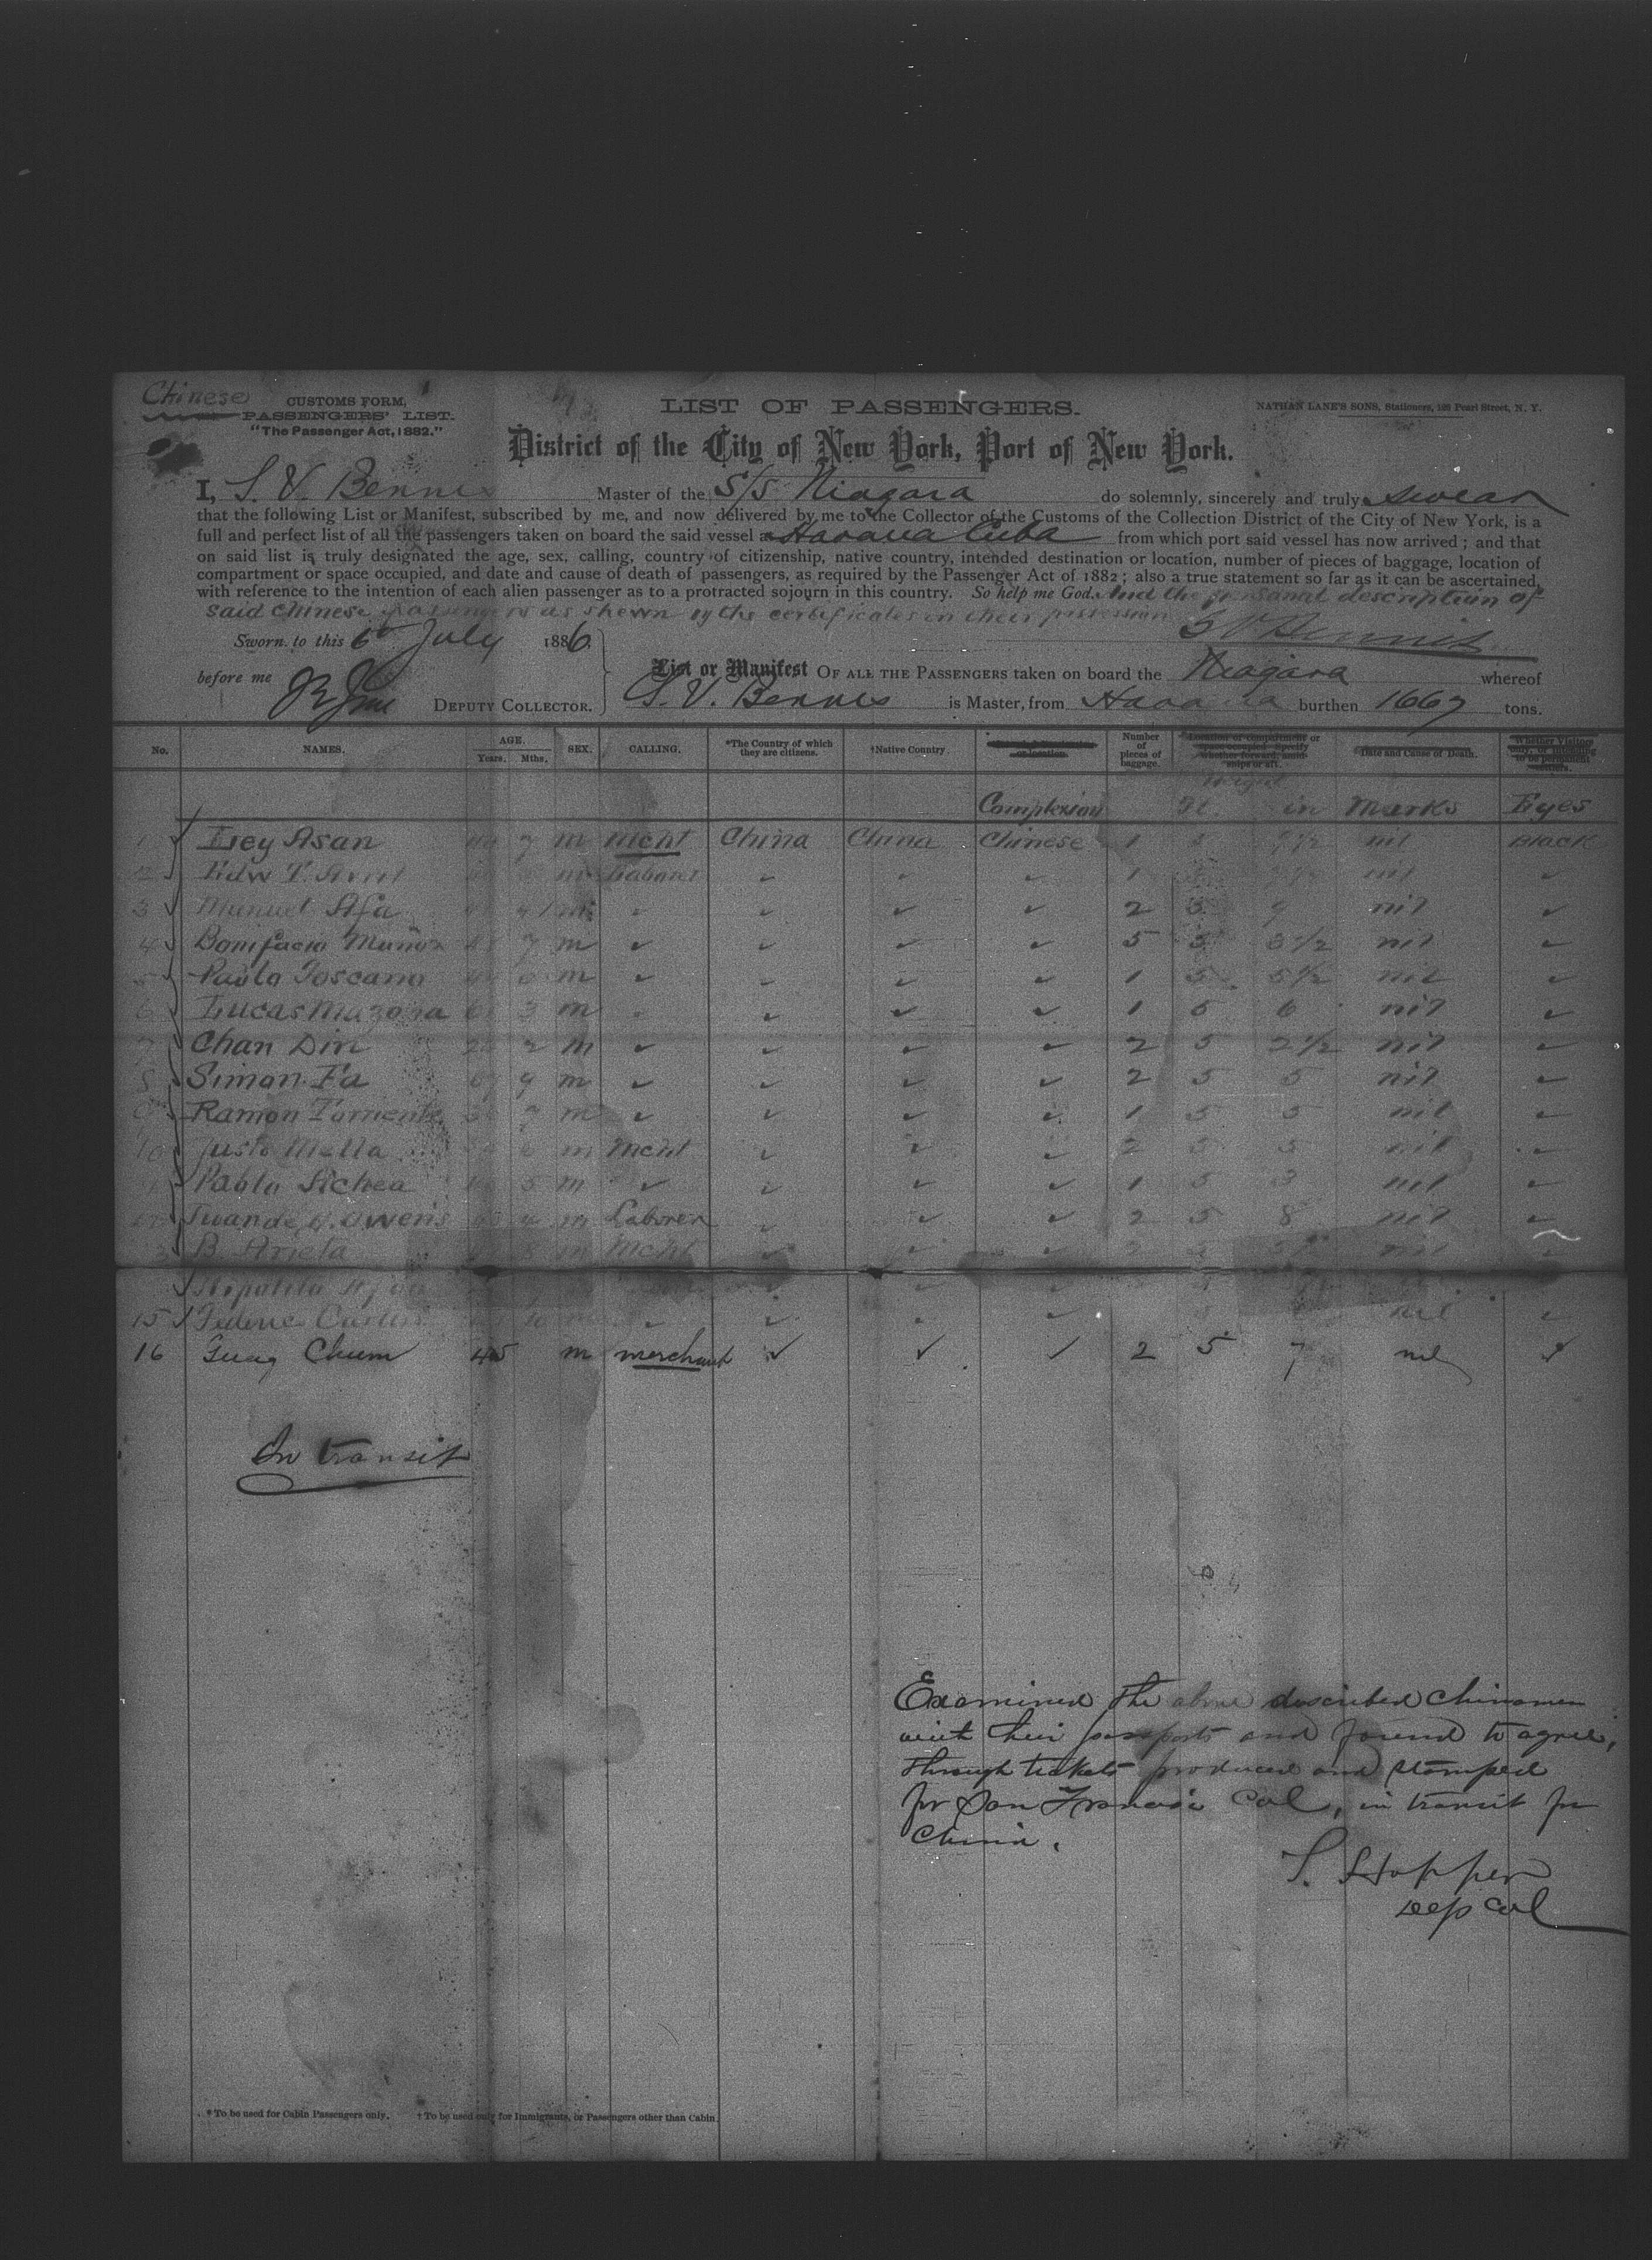 Chinese
CUSTOMS FORM,
PASSENGERS' LIST.
"The Passenger Act, 1882."
LIST OF PASSENGERS.
NATHAN LANE'S SONS, Stationers, 138 Pearl Street, N. Y.
District of the City of New York, Port of New York.
I, S. V. Bennis Master of the S/S Niagara do solemnly, sincerely and truly swear
that the following List or Manifest, subscribed by me, and now delivered by me to the Collector of the Customs of the Collection District of the City of New York, is a
full and perfect list of all the passengers taken on board the said vessel at Havana Cuba from which port said vessel has now arrived ; and that
on said list is truly designated the age, sex, calling, country of citizenship, native country, intended destination or location, number of pieces of baggage, location of
compartment or space occupied, and date and cause of death of passengers, as required by the Passenger Act of 1882 ; also a true statement so far as it can be ascertained,
with reference to the intention of each alien passenger as to a protracted sojourn in this country. So help me God. And the personal description of
said Chinese passengers as shewn by the certificates in their possession
S V Bennis
Sworn to this 6 July 1886.
List or Manifest OF ALL THE PASSENGERS taken on board the Niagara whereof
before me DEPUTY COLLECTOR. S. V. Bennis is Master, from Havana burthen 1667 tons.
No. NAMES. AGE. Years. Mths. SEX. CALLING. *The Country of which they are citizens. †Native Country. or location. Number of pieces of baggage. Location of compartment or space occupied, specify whether forward, amidships or aft. Date and Cause of Death. Whether Visitors only, or intending to be permanent settlers.
Height
Complexion ft. in Marks Eyes
1 Ley Asan 7 m mcht China China Chinese 1 5 nil Black
2 Edw T. m Laborer ✓ ✓ ✓ 1 nil ✓
3 Manuel Afa m ✓ ✓ ✓ ✓ 2 5 9 nil ✓
4 Bonifacio Muñoz 7 m ✓ ✓ ✓ ✓ 5 5 3 1/2 nil ✓
5 Pablo Toscano 6 m ✓ ✓ ✓ ✓ 1 5 5 1/2 nil ✓
6 Lucas Mazorra 3 m ✓ ✓ ✓ ✓ 1 5 6 nil ✓
7 Chan Din 2 m ✓ ✓ ✓ ✓ 2 5 2 1/2 nil ✓
8 Simon Fa 9 m ✓ ✓ ✓ ✓ 2 5 5 nil ✓
9 Ramon Torriente m ✓ ✓ ✓ ✓ 1 5 5 nil ✓
10 Justo Mella 6 m mcht ✓ ✓ ✓ 2 5 5 nil ✓
Pablo Sichea 5 m ✓ ✓ ✓ ✓ 1 5 3 nil ✓
Juan de Owens m Laborer ✓ ✓ ✓ 2 5 8 nil ✓
B. Arieta m mcht ✓ ✓ ✓ nil ✓
15 Federico 10 m ✓ ✓ ✓ nil ✓
16 Guag Chum 45 m merchant ✓ ✓ ✓ 2 5 7 nil ✓
In transit
Examined the above described Chinamen
with their passports and found to agree,
through tickets produced and stamped
for San Francisco Cal, in transit for
China.
S. Hopper
Dep Col
* To be used for Cabin Passengers only. † To be used only for Immigrants, or Passengers other than Cabin.